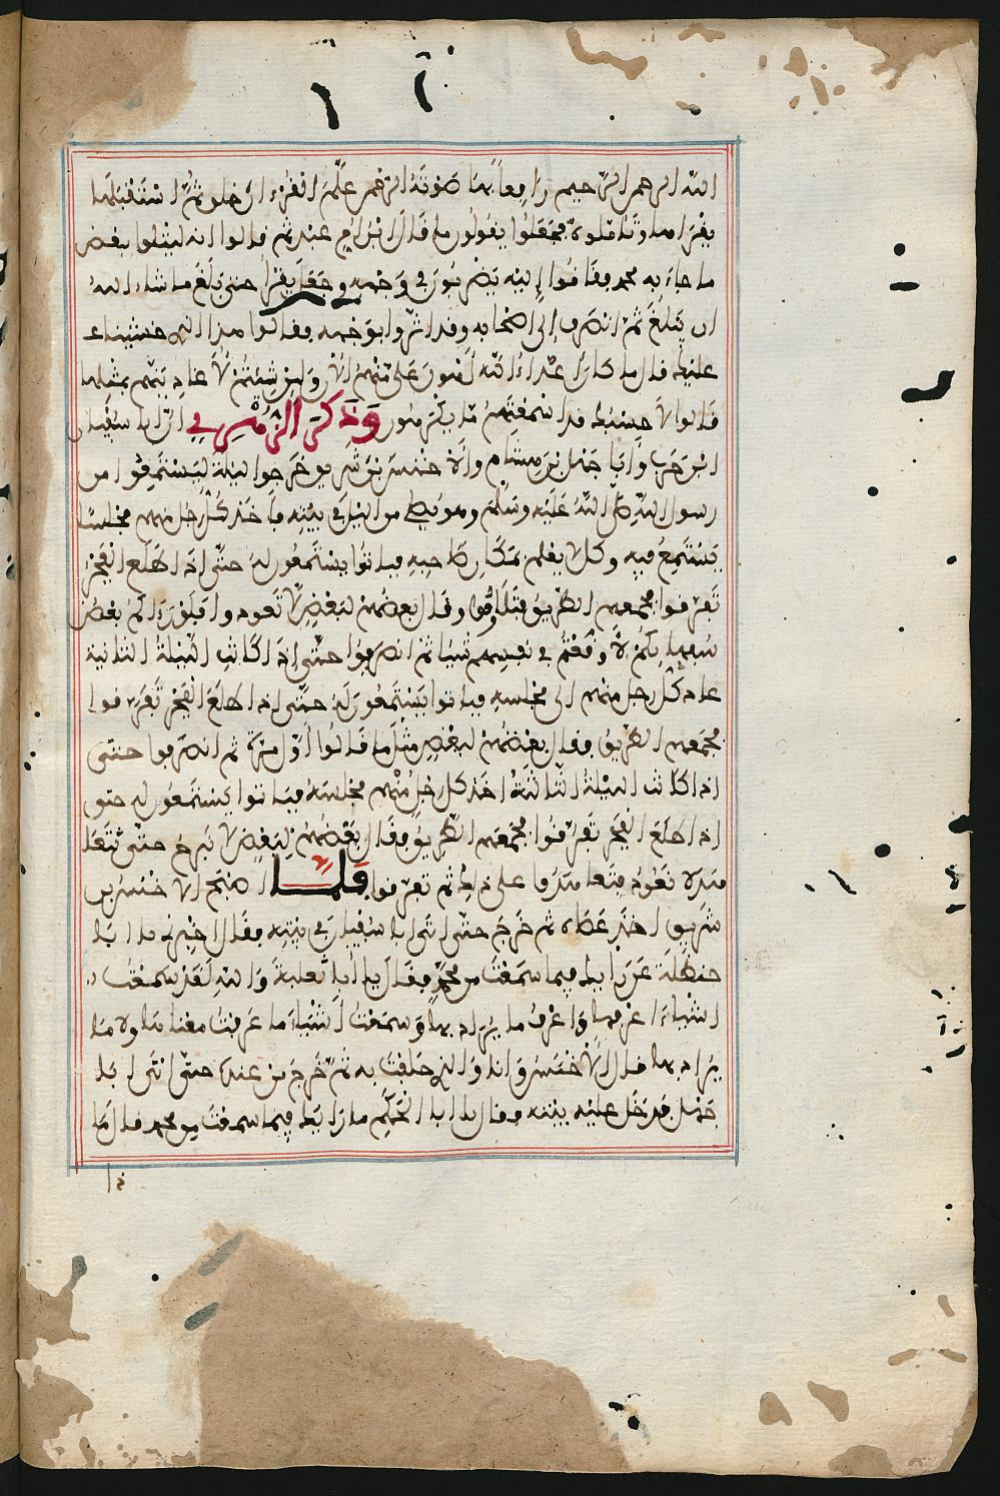 الله الرحمن الرحيم رافعا بها صوته الرحمن علم القرءان خلو ثم استقبلها
يقراها وتاملوه فجعلوا يقولون ما قال ابن ام عبد ثم قالوا انه ليتلوا بعض
ما جاء به محمد فقاموا إليه يضربون في وجهه وجعل يقرا حتى بلغ ما شاء الله
ان يبلغ ثم انصرف إلى اصحابه وقد اثروا بوجهه فقالوا هذا الذي خشينا
عليك قال ما كان اعداء الله أهون علي منهم الان ولئن شيتم لأغادينهم بمثلها
قالوا لا حسبك قد اسمعتهم ما يكرهون وذكر الزهري ان ابا سفيان
ابن حرب وأبا جهل بن هشام والاخنس بن شريق خرجوا ليلة ليستمعوا من
رسول الله صلى الله عليه وسلم وهو يصلي من الليل في بيته فأخذ كل رجل منهم مجلسا
يستمع فيه وكل لا يعلم بمكان صاحبه فباتوا يستمعون له حتى اذا طلع الفجر
تفرقوا فجمعهم الطريق فتلاوموا وقال بعضهم لبعض لا تعودوا فلو رءاكم بعض
سفهايكم لأوقعتم في نفسه شيا ثم انصرفوا حتى إذا كانت الليلة الثانية
عاد كل رجل منهم الى مجلسه فباتوا يستمعون له حتى اذا طلع الفجر تفرقوا
فجمعهم الطريق فقال بعضهم لبعض مثل ما قالوا أول مرة ثم انصرفوا حتى
اذا كانت الليلة الثالثة اخذ كل رجل منهم مجلسه فباتوا يستمعون له حتى
اذا طلع الفجر تفرقوا فجمعهم الطريق فقال بعضهم لبعض لا نبرح حتى نتعا
هد لا نعود فتعاهدوا على ذلك ثم تفرقوا فلما اصبح الاخنس بن
شريق اخذ عصاه ثم خرج حتى اتى ابا سفيان في بيته فقال اخبرني يا ابا
حنظلة عن رايك فيما سمعت من محمد فقال يا أبا ثعلبة والله لقد سمعت
اشياء اعرفها واعرف ما يراد بها وسمعت أشياء ما عرفت معناها ولا ما
يراد بها قال الأخنس وانا والذي حلفت به ثم خرج من عنده حتى اتى ابا
جهل فدخل عليه بيته فقال يا ابا الحكم ما رايك فيما سمعت من محمد قال ما
ذا